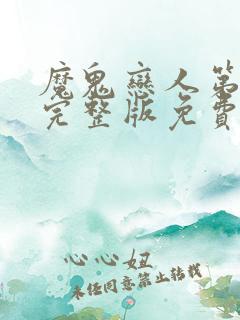 魔鬼戀人第
完整版免費
心心妞
未任同意禁止转载